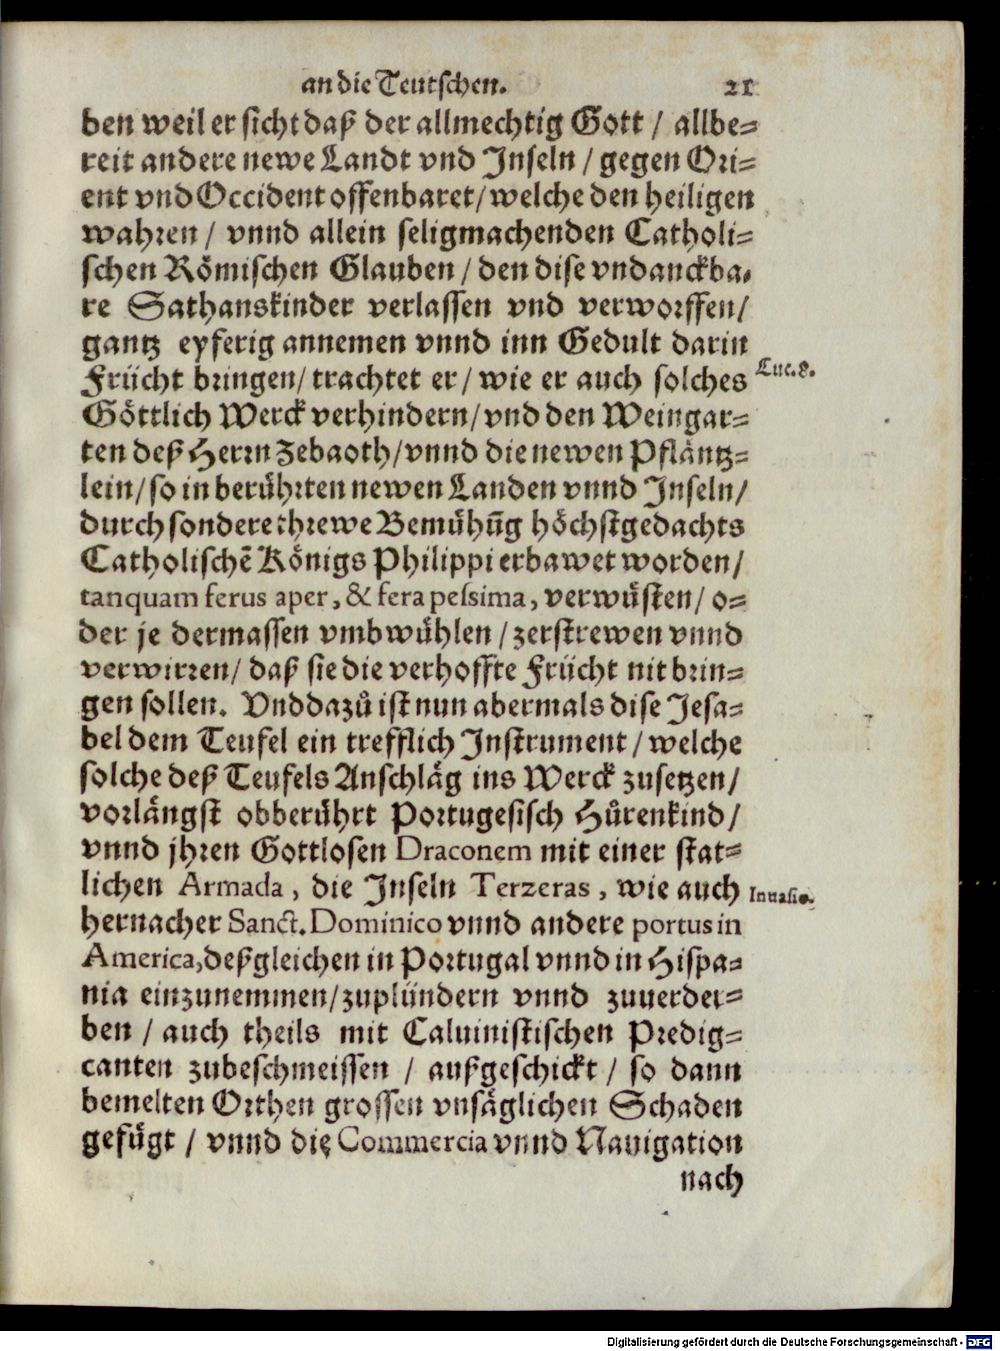 an die Teutschen. 21
ben weil er sicht daß der allmechtig Gott / allbe-
reit andere newe Landt vnd Inseln / gegen Ori-
ent vnd Occident offenbaret / welche den heiligen
wahren / vnnd allein seligmachenden Catholi-
schen Römischen Glauben / den dise vndanckba-
re Sathanskinder verlassen vnd verworffen /
gantz eyferig annemen vnnd inn Gedult darin
Frücht bringen / trachtet er / wie er auch solches Luc. 8.
Göttlich Werck verhindern / vnd den Weingar-
ten deß Herrn Zebaoth / vnnd die newen Pfläntz-
lein / so in berührten newen Landen vnnd Inseln /
durch sondere threwe Bemühūg höchstgedachts
Catholischē Königs Philippi erbawet worden /
tanquam ferus aper, & fera pessima, verwüsten / o-
der je dermassen vmbwühlen / zerstrewen vnnd
verwirren / daß sie die verhoffte Frücht nit brin-
gen sollen. Vnd dazů ist nun abermals dise Jesa-
bel dem Teufel ein trefflich Instrument / welche
solche deß Teufels Anschläg ins Werck zusetzen /
vorlängst obberührt Portugesisch Hůrenkind /
vnnd jhren Gottlosen Draconem mit einer stat-
lichen Armada, die Inseln Terzeras, wie auch Inuasio.
hernacher Sanct. Dominico vnnd andere portus in
America, deßgleichen in Portugal vnnd in Hispa-
nia einzunemmen / zuplündern vnnd zuuerder-
ben / auch theils mit Caluinistischen Predig-
canten zubeschmeissen / außgeschickt / so dann
bemelten Orthen grossen vnsäglichen Schaden
gefügt / vnnd die Commercia vnnd Nauigation
nach
Digitalisierung gefördert durch die Deutsche Forschungsgemeinschaft - DFG